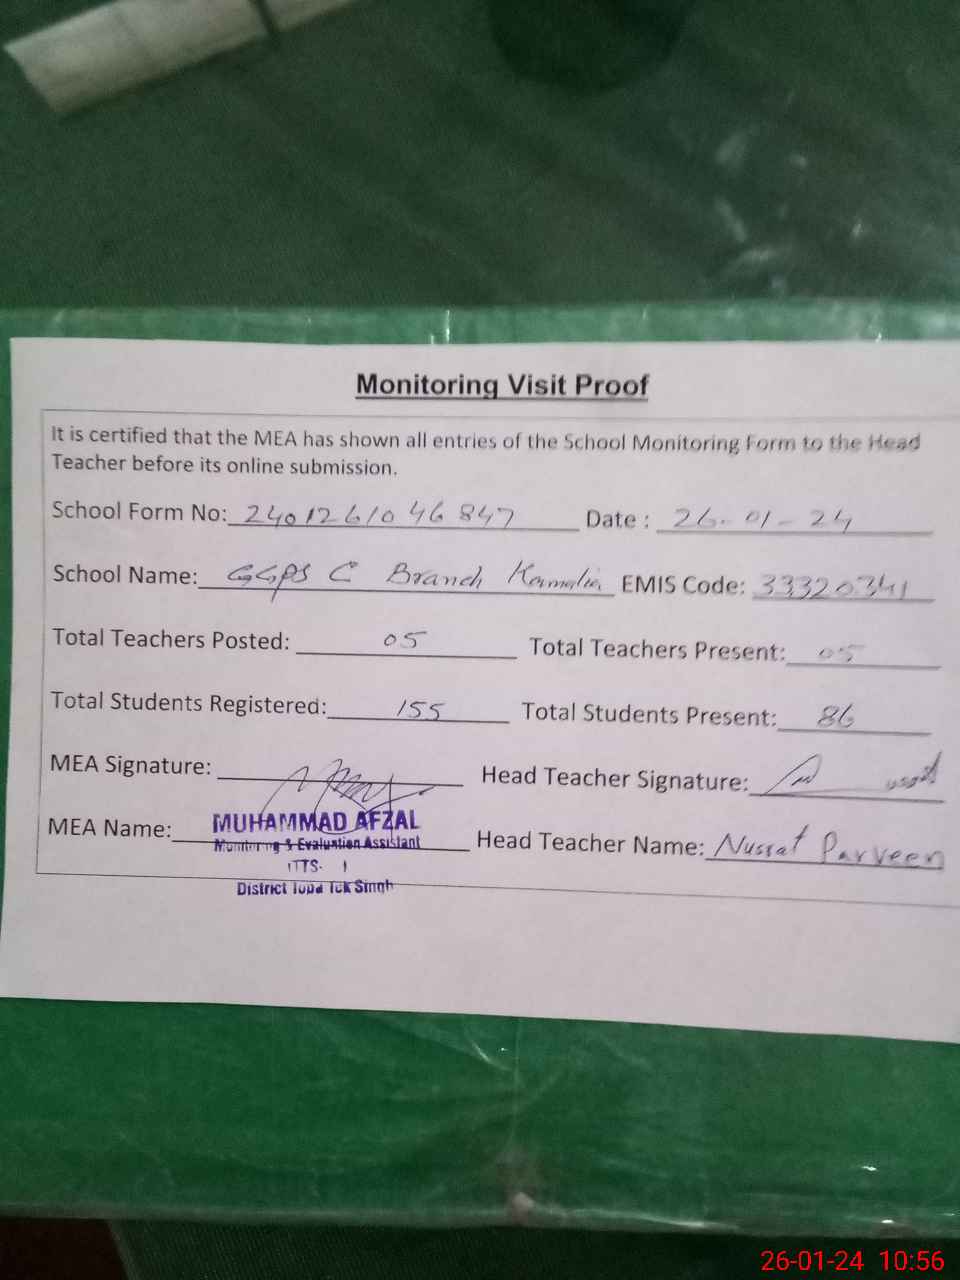 Monitoring Visit Proof
It is certified that the MEA has shown all entries of the School Monitoring Form to the Head
Teacher before its online submission.
School Form No: 2401261046847 Date : 26-01-24
School Name: GGPS C Branch Kamalia EMIS Code: 33320341
Total Teachers Posted: 05 Total Teachers Present: 05
Total Students Registered: 155 Total Students Present: 86
MEA Signature: Head Teacher Signature:
MEA Name: MUHAMMAD AFZAL Head Teacher Name: Nussat Parveen
Monitoring & Evaluation Assistant
District Toba Tek Singh
26-01-24 10:56